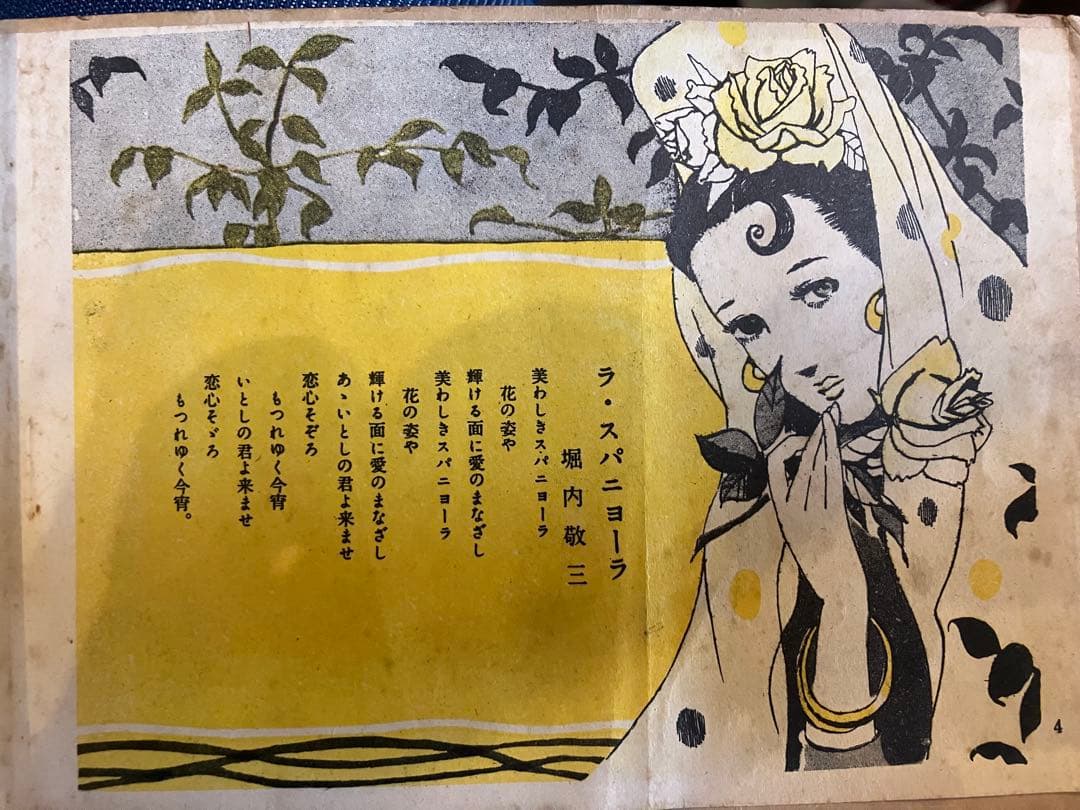 ラ・スパニヨーラ
堀内敬三
美わしきスパニヨーラ
花の姿や
輝ける面に愛のまなざし
美わしきスパニヨーラ
花の姿や
輝ける面に愛のまなざし
あゝいとしの君よ来ませ
恋心そぞろ
もつれゆく今宵
いとしの君よ来ませ
恋心そゞろ
もつれゆく今宵。
4